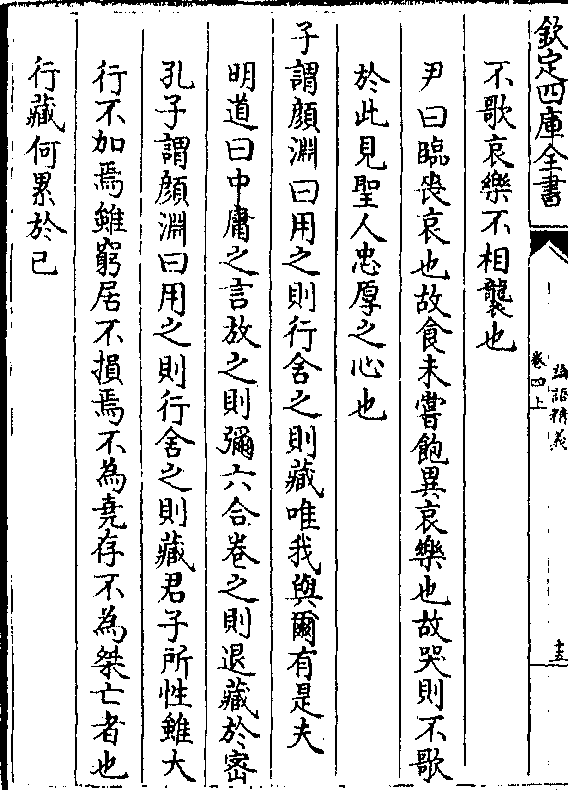 欽定四庫全書
論語精義
卷四上
十五
不歌哀樂不相襲也
尹曰臨喪哀也故食未嘗飽異哀樂也故哭則不歌
於此見聖人忠厚之心也
子謂顔淵曰用之則行舍之則藏唯我與爾有是夫
明道曰中庸之言放之則彌六合卷之則退藏於密
孔子謂顔淵曰用之則行舍之則藏君子所性雖大
行不加焉雖窮居不損焉不為堯存不為桀亡者也
行藏何累於己